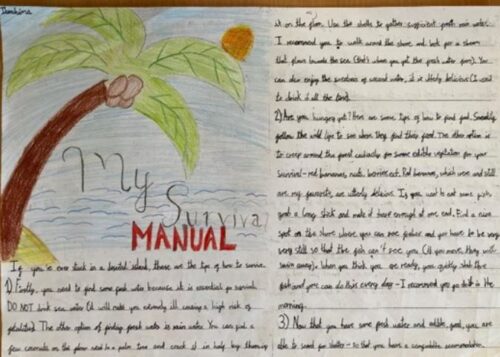 My
Survival
MANUAL
If you're ever stuck in a deserted island, these are the tips of how to survive.
1) Firstly, you need to find some fresh water because it is essential for survival.
DO NOT drink sea water (it will make you extremely ill causing a high risk of
The other option of finding fresh water is rain water. You can put a
few coconuts on the floor next to a palm tree and crack it in half by throwing
it on the floor. Use the shells to gather sufficient fresh rain water.
I recommend you to walk around the shore and look for a stream
that flows towards the sea (that's where you get the fresh water from). You
can also enjoy the sweetness of coconut water, it is utterly delicious (I used
to drink it all the time).
2) Are you hungry yet? Here are some tips of how to find food. Sneakily
follow the wild life to see where they find their food. The other option is
to creep around the forest cautiously for some edible vegetation for your
survival - red bananas, nuts, berries ect. Red bananas, which were and still
are my favourite, are utterly delicious. If you want to eat some fish,
grab a long stick and make it sharp enough at one end. Find a nice
spot on the shore where you can see fishes and you have to be very
very still so that the fish can't see you (if you move, they will
swim away). When you think you are ready, you quickly stab the
fish and you can do this every day - I recommend you go in the
morning.
3) Now that you have some fresh water and edible food, you are
able to search for shelter - so that you have a comfortable accommodation.